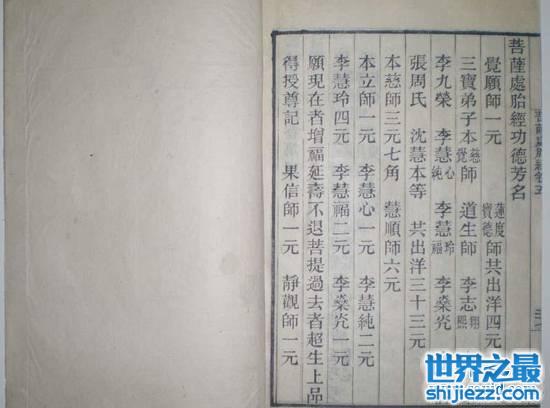 菩薩處胎經功德芳名
覺願師一元 蓮度寶德師共出洋四元
三寶弟子本慈覺師 道生師 李志翔熙
李九榮 李慧心純 李慧玲福 李燊灮
張周氏 沈慧本等 共出洋三十三元
本慈師三元七角 慧順師六元
本立師一元 李慧心一元 李慧純二元
李慧玲四元 李慧福二元 李燊灮一元
願現在者增福延壽不退菩提過去者超生上品
得授尊記 果信師一元 靜觀師一元
世界之最
shijiezz.com